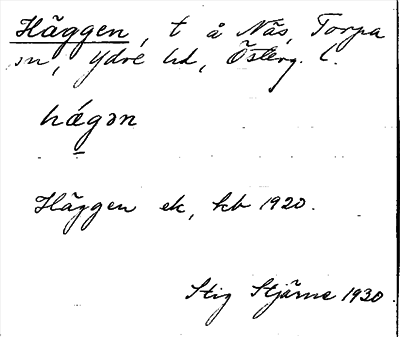 Häggen, t å Näs, Torpa
sn, Ydre hd, Österg. l.
hǽgən
Häggen ek, kb 1920.
Stig Stjärne 1930